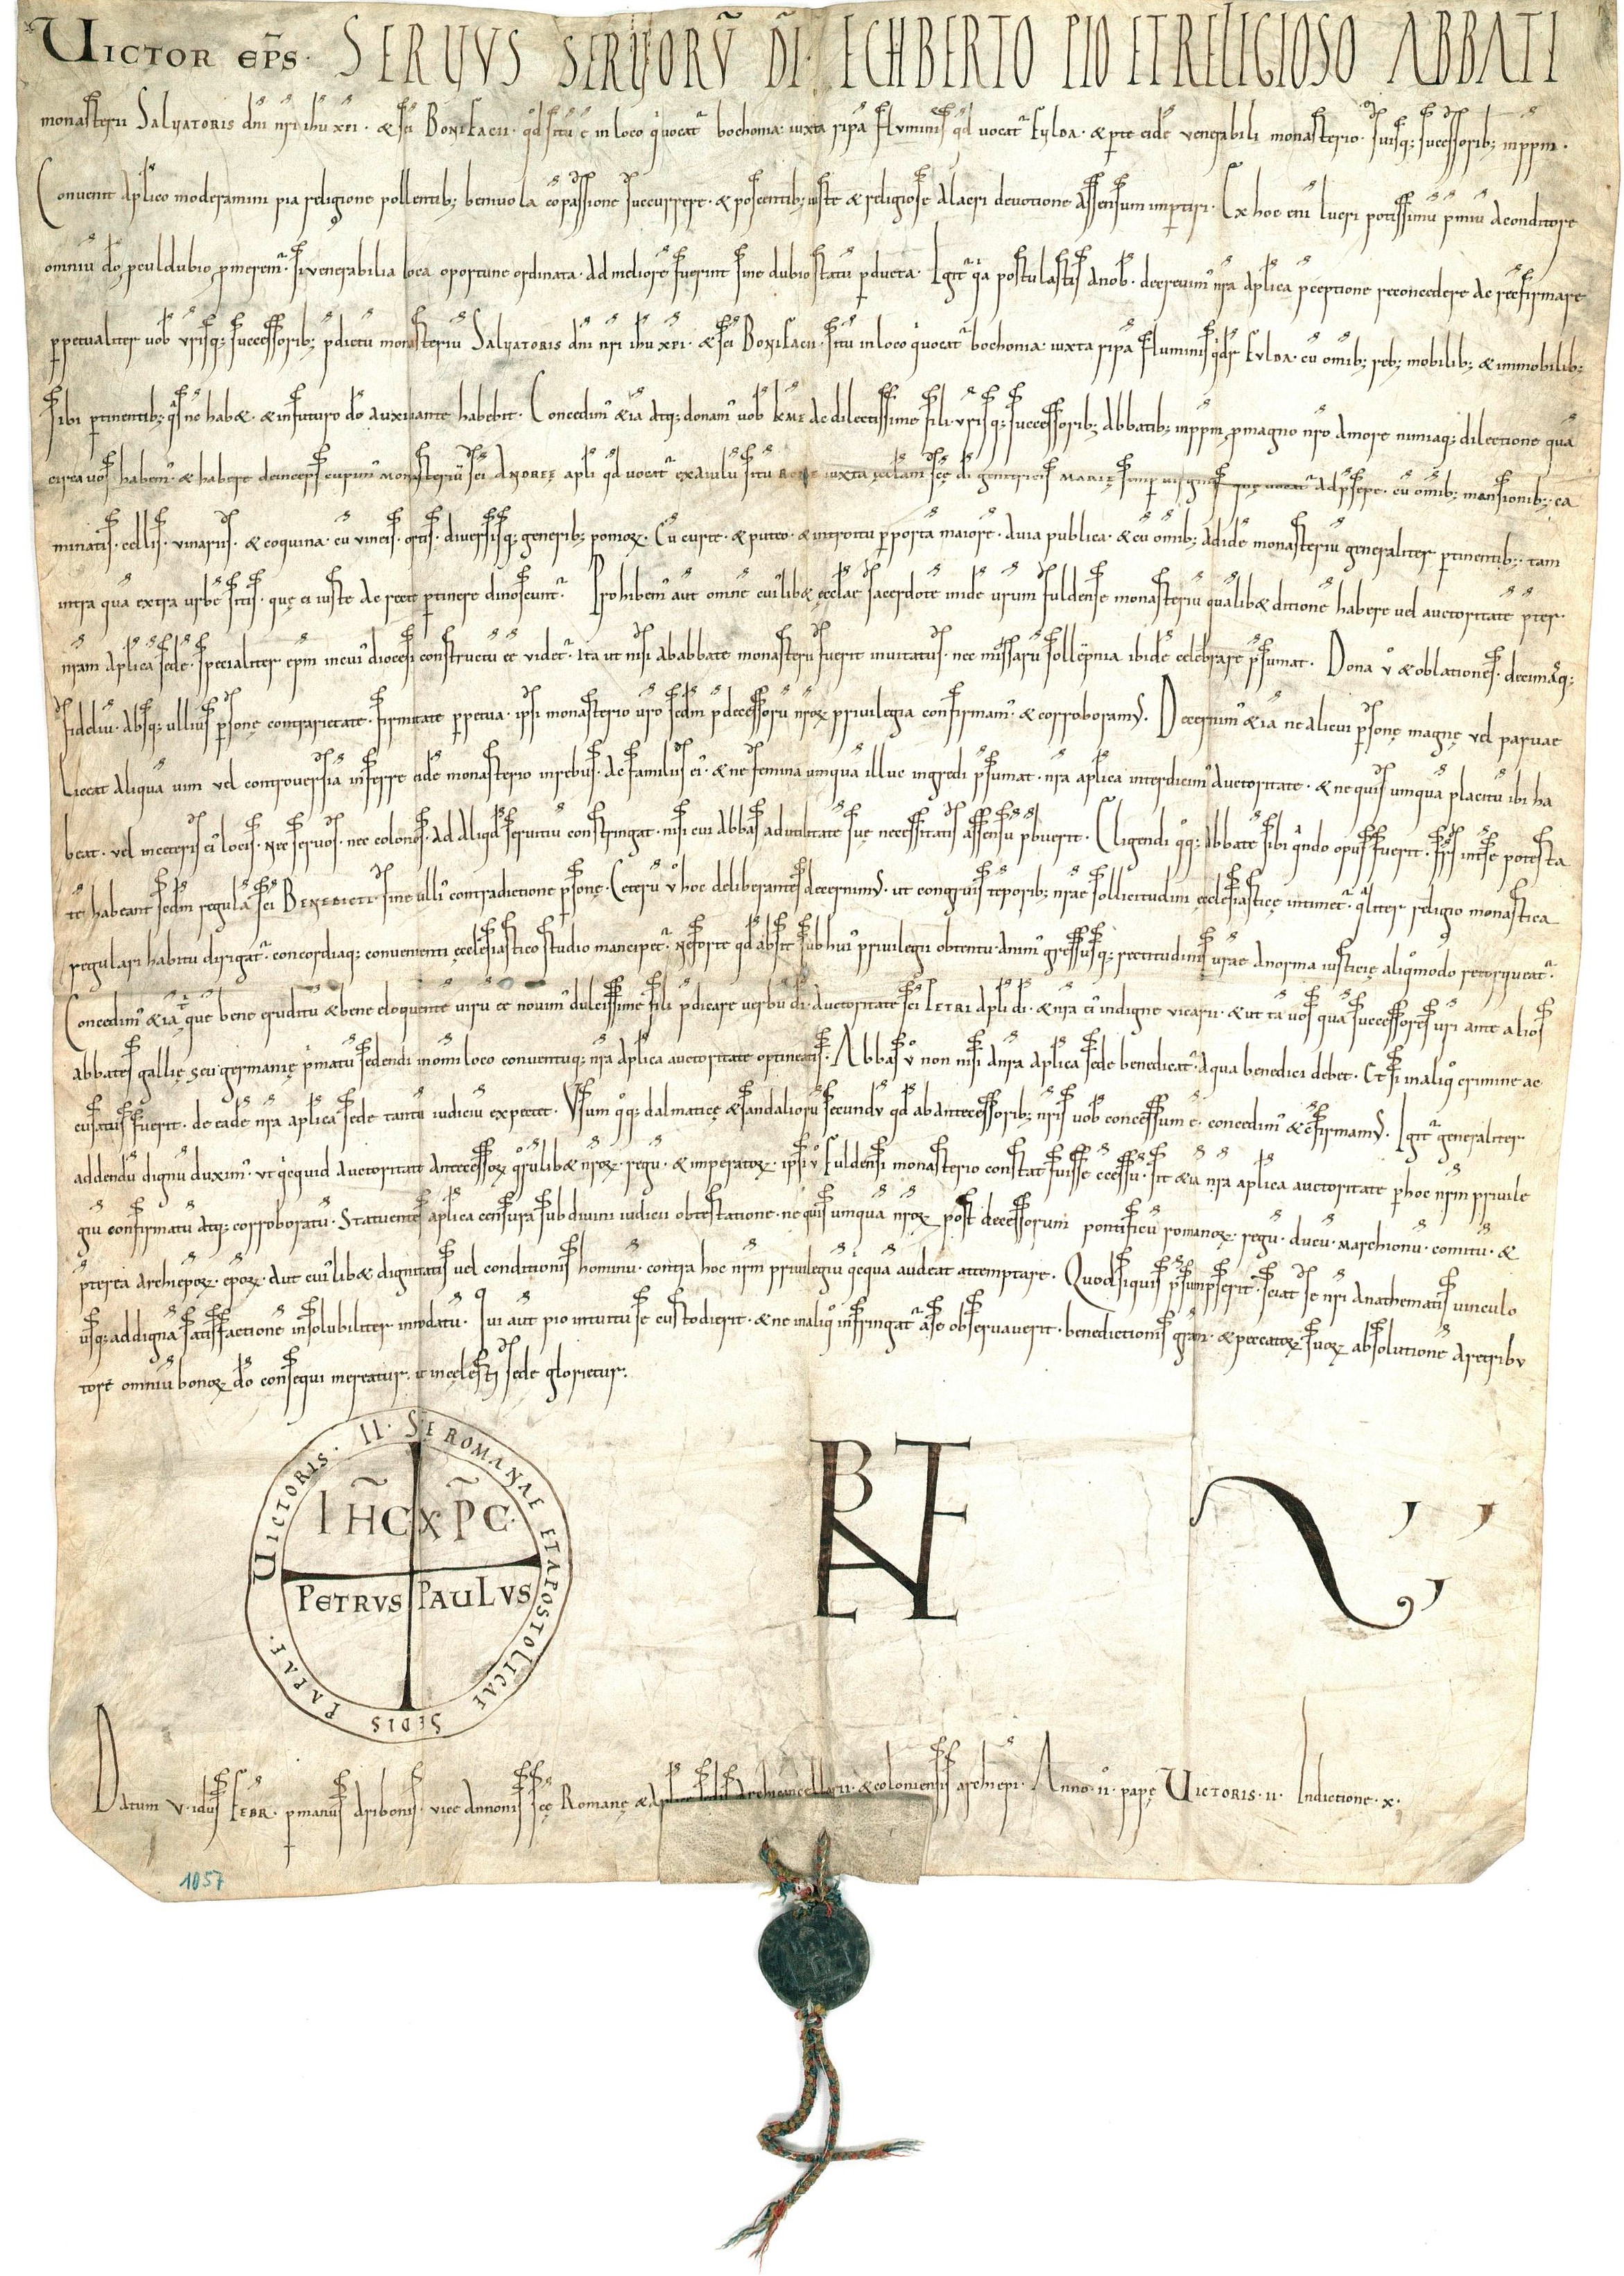 UICTOR EP̄S · SERUUS SERUORŪ DĪ · ECHBERTO PIO ET RELIGIOSO ABBATI
monasterii SALVATORIS dn̄i nr̄i ihū xp̄i · & sc̄i BONIFACII · qd̄ sitū ē in loco q̇ vocat̃ bochonia iuxta ripā flvminis qd̄ vocat̃ FVLDA · & p̱ te eidē venerabili monasterio · suisq; successorib; inpp̄m ·
Convenit ap̄lico moderamini pia religione pollentib; beniuola cōpassione succurrere · & poscentib; iuste & religiose alacri devotione assensum imp̱tiri · Ex hoc eni lucri potissimū p̄miū a conditore
omniū dō pculdubio p̱merem̃ · si venerabilia loca oportune ordinata · ad meliorē fuerint sine dubio statū p̱ducta · Igit̃ q̇a postulastis a nob̄ · decreuim̃ nr̄a ap̄lica p̄ceptione reconcedere ac recc̄firmare
p̱petualiter uob̄ vr̄isq; successorib; p̄dictū monasteriū SALVATORIS dn̄i nr̄i ihū xp̄i · & sc̄i BONIFACII · sitū in loco q̇ vocat̃ bochonia · iuxta ripā fluminis q̇ dr̄ FVLDA · cū om̄ib; reb; mobilib; & immobilib;
sibi p̱tinentib; q̇s nc̄ hab& · & in futuro dō auxiliante habebit · Concedim̃ &iā atq; donam̃ uob̄ kme ac dilectissime fili · vr̄isq; successorib; abbatib; inpp̄m p̱ magno nr̄o amore nimiaq; dilectione quā
circa uos habem̃ · & habere deinceps cupim̃ monasteriū sc̄i ANDREE apl̄i qd̄ vocat̃ exaiulu sitū ROME iuxta ęcclam sc̄ę dī genitricis MARIĘ semp̱ virginis quę vocat̃ ad p̄sepe · cū om̄ib; mansionib; ca
minatis · cellis · vinariis · & coquina · cū vineis · ortis · diversisq; generib; pomoꝝ · Cū curte · & puteo · & introitu p̱ portā maiorē · a uia publica · & cū om̄ib; ad idē monasteriū generaliter p̱tinentib; tam
intra quā extra urbē sitis · quę ei iuste ac recte p̱tinere dinoscunt̃ · Prohibem̃ aut̄ omnē cui̓lib& ęcclae sacerdotē in idē vr̄um fuldense monasteriū qualib& ditionē habere vel auctoritatē p̄ter
nr̄am ap̄licā sedē · specialiter ep̄m in cui̓ diocesi constructū eē videt̃ · ita ut nisi ab abbate monasterii fuerit invitatus · nec missarū sollēpnia ibidē celebrare p̄sumat · Dona v̊ & oblationes · decimasq;
fideliū · absq; ullius p̱sonę contrarietate · firmitate p̱petua · ipsi monasterio vr̄o sedm̄ p̄decessorū nr̄oꝝ privilegia confirmam̃ · & corroboram̃ · Decernim̃ &iā ne alicui p̱sonę magnę vel parvae
Liceat aliquā uim vel controversiā inferre eidē monasterio in rebus · ac familiis ei̓ · & ne femina umquā illuc ingredi p̄sumat · nr̄a ap̄lica interdicim̃ auctoritate · & ne quis umquā placitū ibi ha
beat · vel in ceteris ei̓ locis · nec servos · nec colonos · ad aliqd̄ servitiū constringat · nisi cui abbas ad utilitatē suę necessitatis assensū p̱buerit · Eligendi qq; abbatē sibi q̇ndo opus fuerit · fr̄s int̄ se potesta
tē habeant sedm̄ regulā sc̄i BENEDICTI · sine ulli̓ contradictione p̱sonę · Ceterū v̊ hoc deliberantes decernim̃ · ut congruis tēporib; nr̄ae sollicitudini ęcclesiasticę intimet̃ · q̇liter religio monastica
regulari habitu dirigat̃ · concordiaq; convenienti ęcclesiastico studio mancipet̃ · Ne forte qd̄ absit sub hui̓ privilegii obtentu · anim̃ gressusq; rectitudinis vr̄ae a norma iusticię aliq̊modo retorqueat̃ ·
Concedim̃ &iā t̄ que bene eruditū & bene eloquentē virū eē novim̃ dulcissime fili p̄dicare verbū dī · auctoritate sc̄i PETRI apl̄i dī · & nr̄a ei̓ indigne vicarii · & ut tā vos quā successores vr̄i ante alios
abbates gallię seu germanię p̄matū sedendi in om̄i loco conventuq; nr̄a ap̄lica auctoritate optineatis · Abbas v̊ non nisi a nr̄a ap̄lica sede benedicat̃ · a qua benedici debet · Et si in aliq̊ crimine ac
cusatus fuerit · de eadē nr̄a ap̄lica sede tantū iudiciū expectet · Vsum qq; dalmaticę & sandaliorū secundū qd̄ ab antecessorib; nr̄is uob̄ concessum ē · concedim̃ & c̄firmam̃ · Igit̃ generaliter
addendū dignū duxim̃ · ut q̇cquid auctoritate antecessoꝝ q̇rūlib& nr̄oꝝ · regū · & imperatoꝝ · ipsi v̊ fuldensi monasterio constat fuisse c̄cessū · sit &iā nr̄a ap̄lica auctoritate p̱ hoc nr̄m privile
giū confirmatū atq; corroboratū · Statuentes ap̄lica censura sub divini iudicii obtestatione · ne quis umquā nr̄oꝝ post decessorum pontificū romanoꝝ · regū · ducū · marchionū · comitū · &
p̄terea archiepōꝝ · epōꝝ · aut cui̓lib& dignitatis vel conditionis hominū · contra hoc nr̄m privilegiū q̇cquā audeat attemptare · Quod si quis p̄sumpserit · sciat se nr̄i anathematis vinculo
usq; ad dignā satisfactionē insolubiliter innodatū · Qui aut̄ pio intuitu se custodierit · & ne in aliq̊ infringat̃ a se observaverit · benedictionis gr̄am · & peccatoꝝ suoꝝ absolutionē a retribu
tore omniū bonoꝝ dō consequi mereatur · & in cęlesti sede glorietur :
UICTORIS · II · SCE ROMANAE ET APOSTOLICAE SEDIS PAPAE ·
IHC XPC ·
PETRVS PAULVS
Datum v · idus FEBR · p̱ manus aribonis · vice annonis sc̄ę Romanę & ap̄lice sedis archicancellarii · & coloniensis archiep̄i · Anno · ii · papę UICTORIS · ii · Indictione · x ·
1057